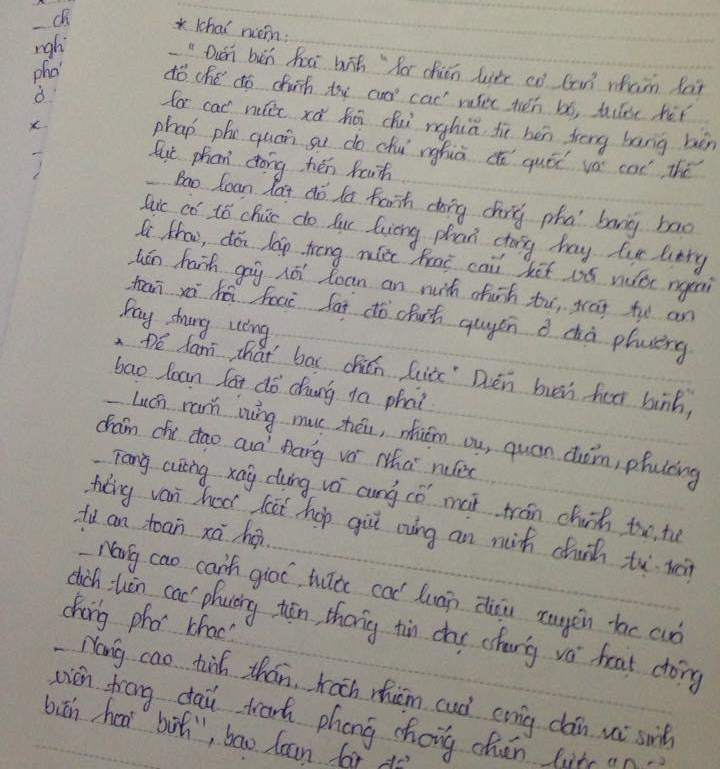 _ ch
ngh
phá
ở
*
* Khái niệm:
_ "Diễn biến hoà bình" là chiến lược cơ bản nhằm lật
đổ chế độ chính trị của các nước tiến bộ, trước hết
là các nước xã hội chủ nghĩa từ bên trong bằng biện
pháp phi quân sự do chủ nghĩa đế quốc và các thế
lực phản động tiến hành
_ Bạo loạn lật đổ là hành động chống phá bằng bạo
lực có tổ chức do lực lượng phản động hay lực lượng
li khai, đối lập trong nước hoặc cấu kết với nước ngoài
tiến hành gây rối loạn an ninh chính trị, trật tự an
toàn xã hội hoặc lật đổ chính quyền ở địa phương
hay trung ương
* Để làm thất bại chiến lược "Diễn biến hoà bình",
bạo loạn lật đổ chúng ta phải:
_ Luôn nắm vững mục tiêu, nhiệm vụ, quan điểm, phương
châm chỉ đạo của Đảng và Nhà nước
_ Tăng cường xây dựng và củng cố mặt trận chính trị, tư
tưởng văn hoá kết hợp giữ vững an ninh chính trị - trật
tự an toàn xã hội.
_ Nâng cao cảnh giác trước các luận điệu xuyên tạc của
địch trên các phương tiện thông tin đại chúng và hoạt động
chống phá khác
_ Nâng cao tinh thần, trách nhiệm của công dân và sinh
viên trong đấu tranh phòng chống chiến lược "Diễn
biến hoà bình", bạo loạn lật đổ